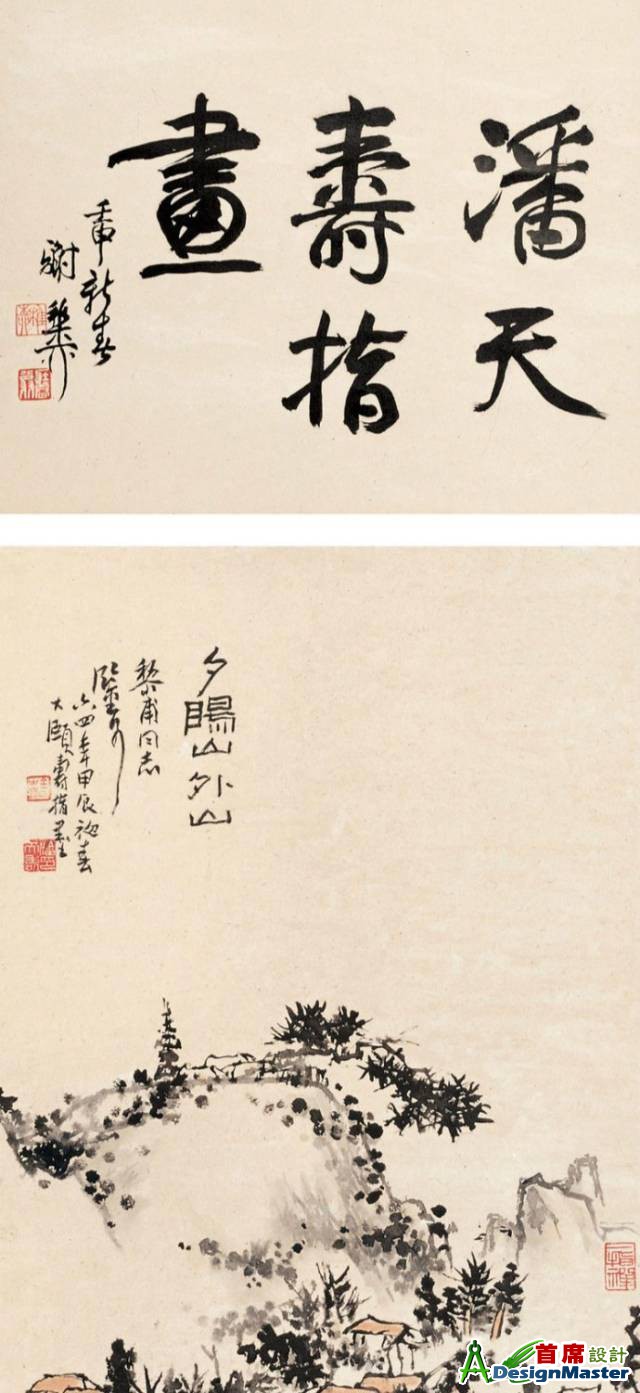 潘天
壽指
畫
壬申新春
謝稚柳
夕暘山外山
黎甫同志
六四年甲辰初春
大頤壽指墨
首席設計
ADesignMaster